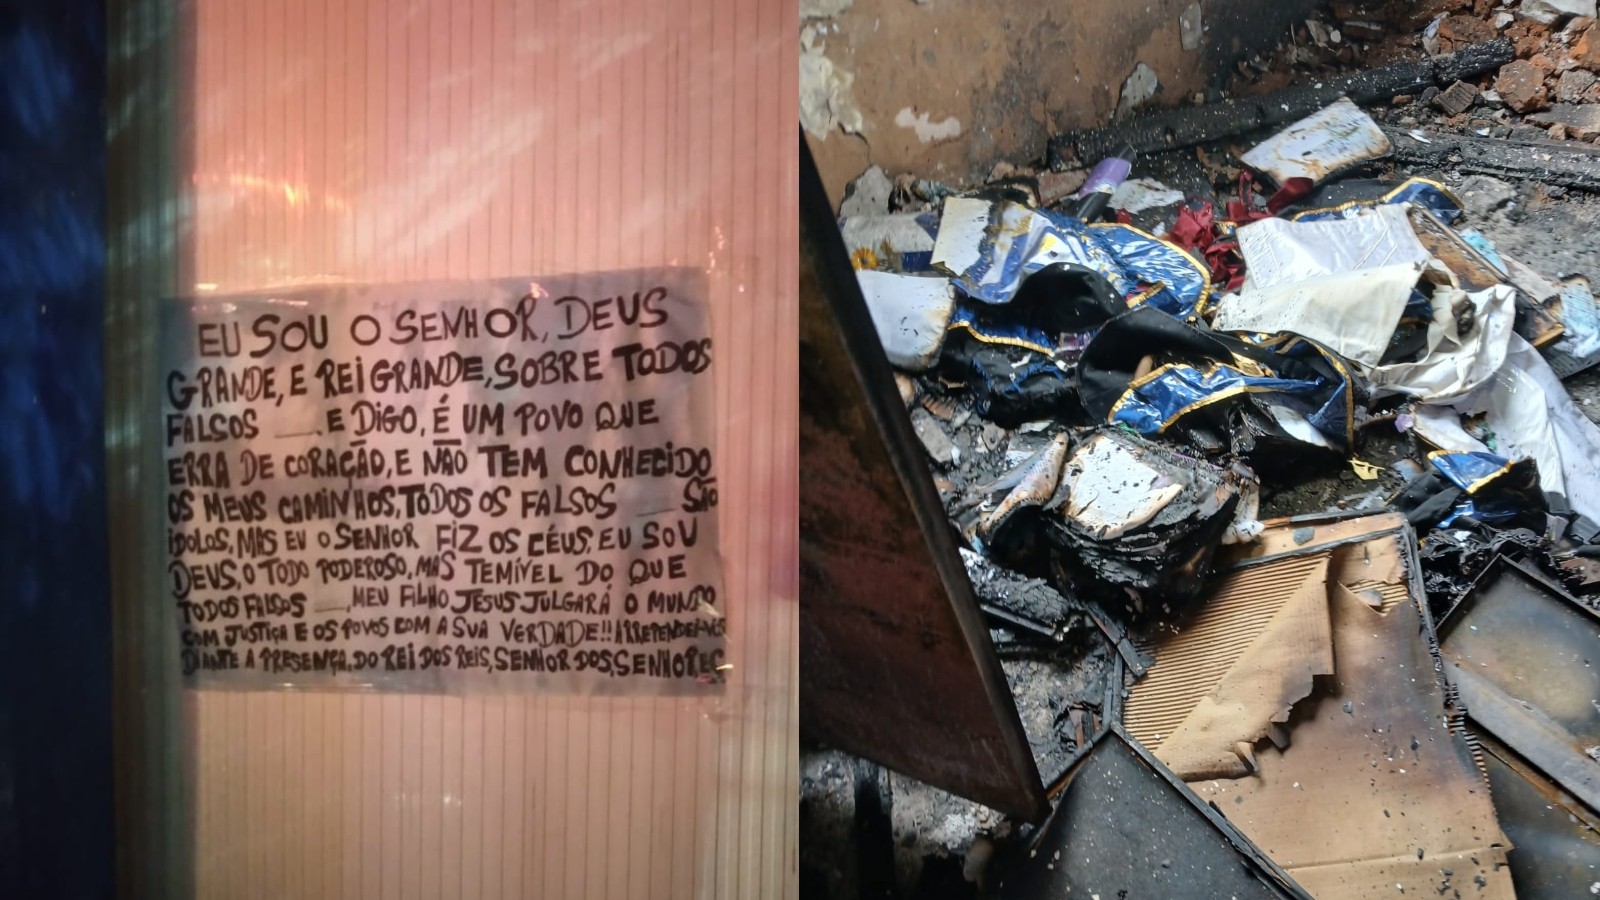 EU SOU O SENHOR, DEUS
GRANDE, E REI GRANDE, SOBRE TODOS
FALSOS ___. E DIGO, É UM POVO QUE
ERRA DE CORAÇÃO, E NÃO TEM CONHECIDO
OS MEUS CAMINHOS, TODOS OS FALSOS ___ SÃO
IDOLOS, MAS EU O SENHOR FIZ OS CÉUS, EU SOU
DEUS, O TODO PODEROSO, MAS TEMÍVEL DO QUE
TODOS FALSOS ___, MEU FILHO JESUS JULGARÁ O MUNDO
COM JUSTIÇA E OS POVOS COM A SUA VERDADE!! ARREPENDEI-VOS
DIANTE A PRESENÇA, DO REI DOS REIS, SENHOR DOS, SENHORES